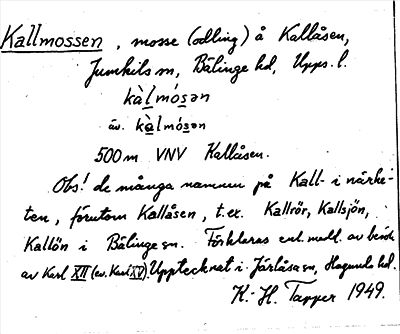 Kallmossen, mosse (odling) å Kallåsen,
Jumkils sn, Bälinge hd, Upps. l.
kàl mósən
äv. kàl mósən
500 m VNV Kallåsen.
Obs! de många namnen på Kall- i närhe-
ten, förutom Kallåsen, t. ex. Kallrör, Kallsjön,
Kallön i Bälinge sn. Förklaras enl. medd. av besök
av Karl XII (ev. Karl XV). Upptecknat i Järlåsa sn, Hagunda hd.
K.-H. Tapper 1949.